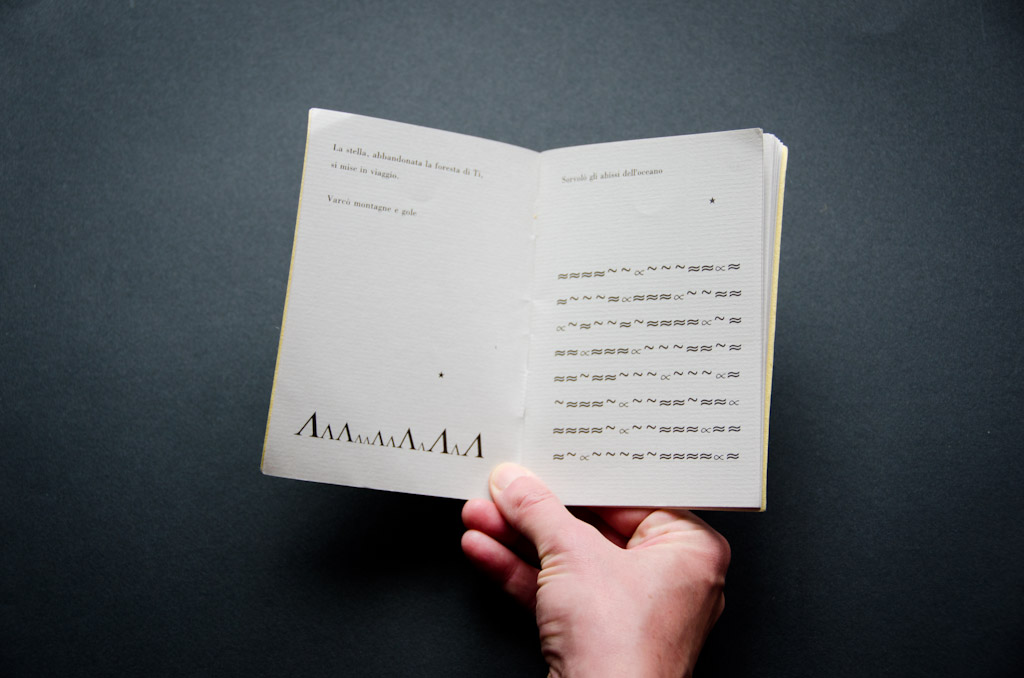 La stella, abbandonata la foresta di Ti,
si mise in viaggio.
Varcò montagne e gole
★
ΛΛΛΛΛΛΛΛΛΛΛΛΛ
Sorvolò gli abissi dell'oceano
★
≈≈≈≈~~∝~~~≈≈∝≈
≈~~~≈∝≈≈≈∝~~≈≈
∝~≈~~≈~≈≈≈≈∝~≈
≈≈∝≈≈≈∝~~~≈≈~≈
≈≈~≈≈~~~∝~~~∝≈
~≈≈≈~∝~~≈≈~≈≈∝
≈≈≈≈~∝~~≈≈≈∝≈≈
≈~∝~~~≈~≈≈≈≈∝≈